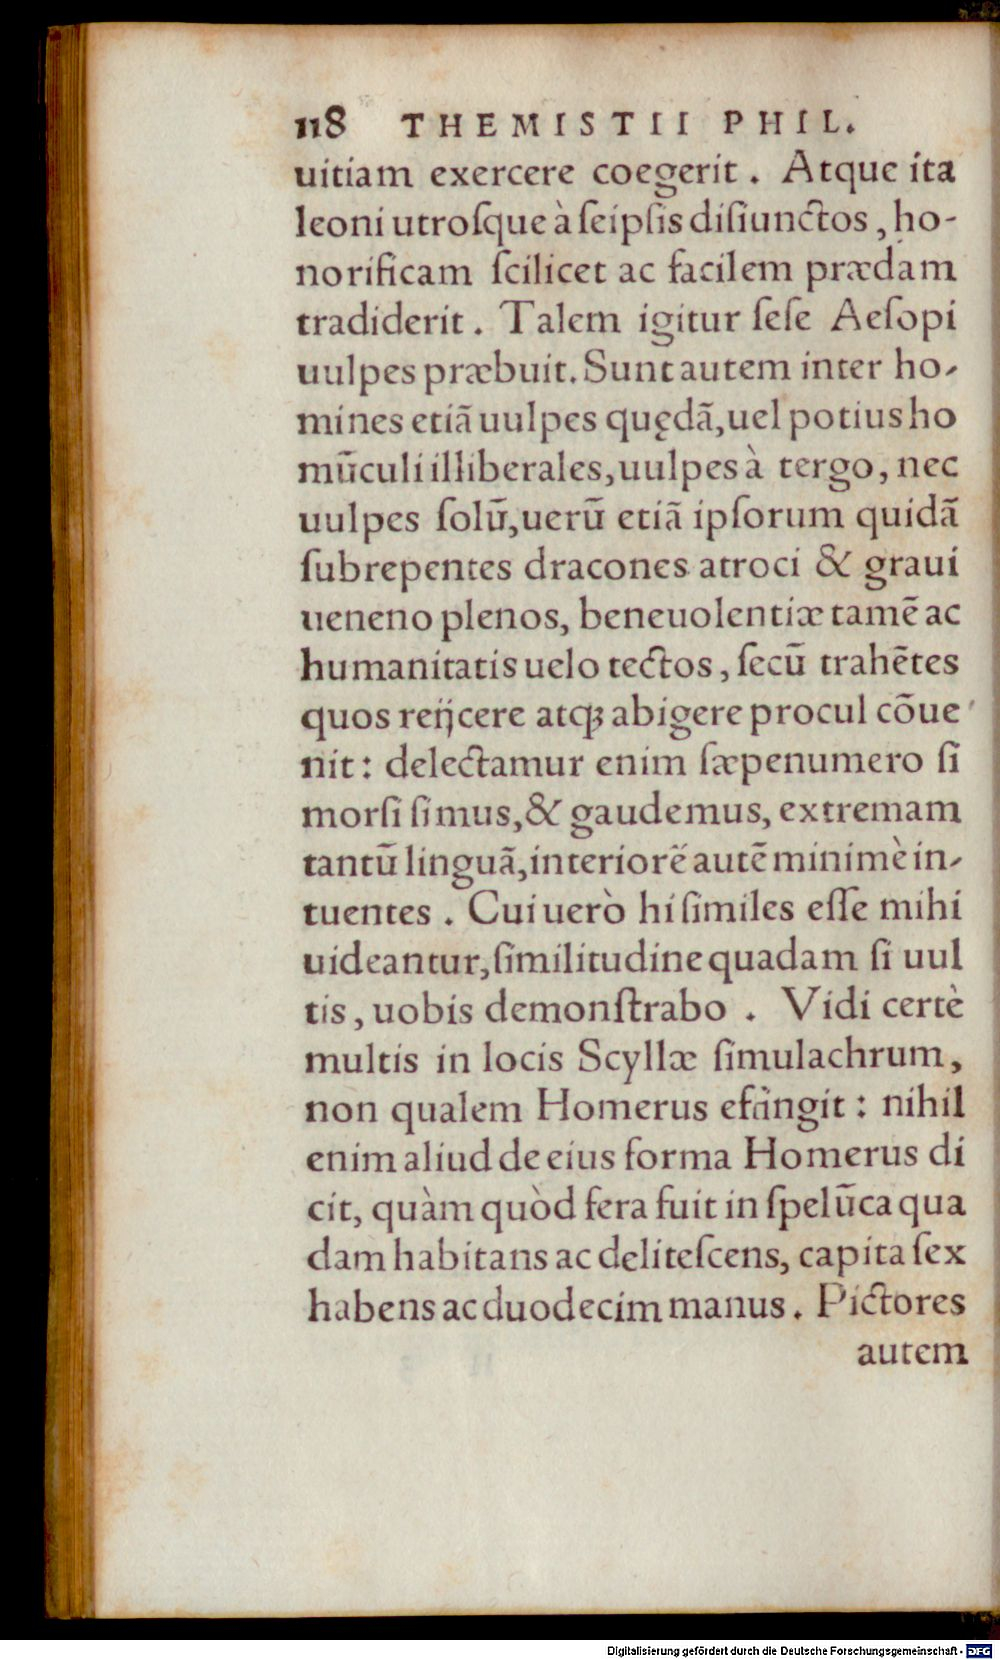 118 THEMISTII PHIL.
uitiam exercere coegerit. Atque ita
leoni utroſque à ſeipſis diſiunctos, ho-
norificam ſcilicet ac facilem prædam
tradiderit. Talem igitur ſeſe Aeſopi
uulpes præbuit. Sunt autem inter ho-
mines etiã uulpes quędã, uel potius ho
mũculi illiberales, uulpes à tergo, nec
uulpes ſolũ, uerũ etiã ipſorum quidã
ſubrepentes dracones atroci & graui
ueneno plenos, beneuolentiæ tamẽ ac
humanitatis uelo tectos, ſecũ trahẽtes
quos reijcere atqꝫ abigere procul cõue
nit: delectamur enim ſæpenumero ſi
morſi ſimus, & gaudemus, extremam
tantũ linguã, interiorẽ autẽ minimè in-
tuentes. Cui uerò hi ſimiles eſſe mihi
uideantur, ſimilitudine quadam ſi uul
tis, uobis demonſtrabo. Vidi certè
multis in locis Scyllæ ſimulachrum,
non qualem Homerus efãngit: nihil
enim aliud de eius forma Homerus di
cit, quàm quòd fera fuit in ſpelũca qua
dam habitans ac deliteſcens, capita ſex
habens ac duodecim manus. Pictores
autem
Digitalisierung gefördert durch die Deutsche Forschungsgemeinschaft - DFG